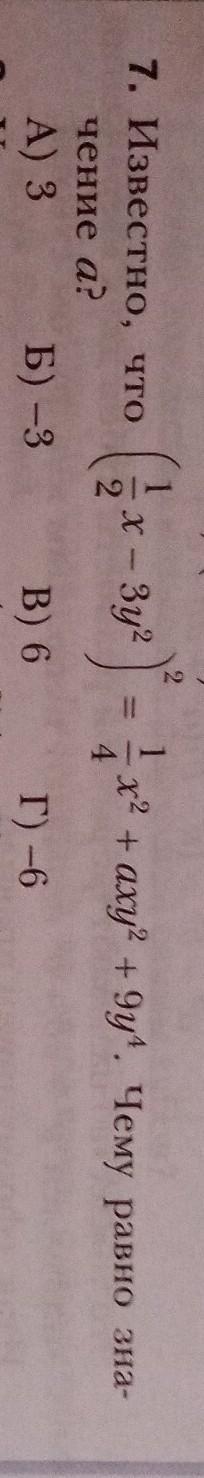 7. Известно, что (1/2 x – 3y²)² = 1/4 x² + axy² + 9y⁴. Чему равно зна-
чение a?
А) 3 Б) –3 В) 6 Г) –6